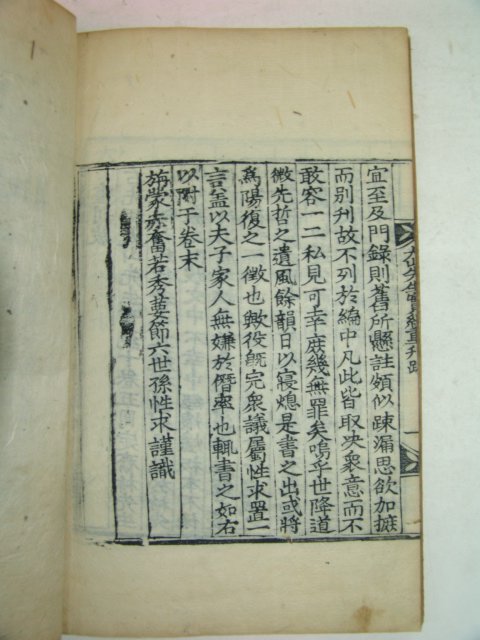 宜至及門錄則舊所懸註頗似踈漏思欲加摭
而别刋故不列於編中凡此皆取决衆意而不
敢容一二私見可幸庶幾無罪矣嗚乎世降道
微先哲之遺風餘韻日以寢熄是書之出或將
爲陽復之一徵也歟役旣完衆議屬性求置一
言盖以夫子家人無嫌於僭率也輒書之如右
以附于卷末
旃蒙赤奮若秀葽節六世孫性求謹識